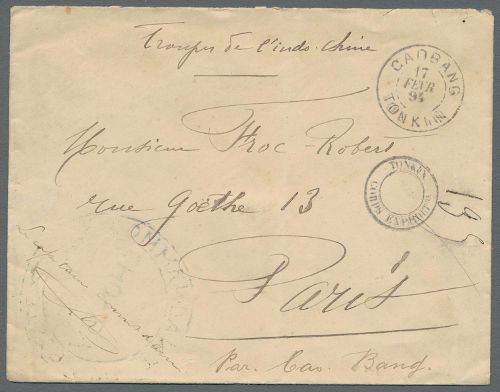 Troupes de l'indo-chine
CAOBANG
17
FEVR
94
TONKIN
Monsieur Froc-Robert
TONKIN
CORPS EXPEDIT.
rue Goëthe 13
193
Paris
Par Cao. Bang.